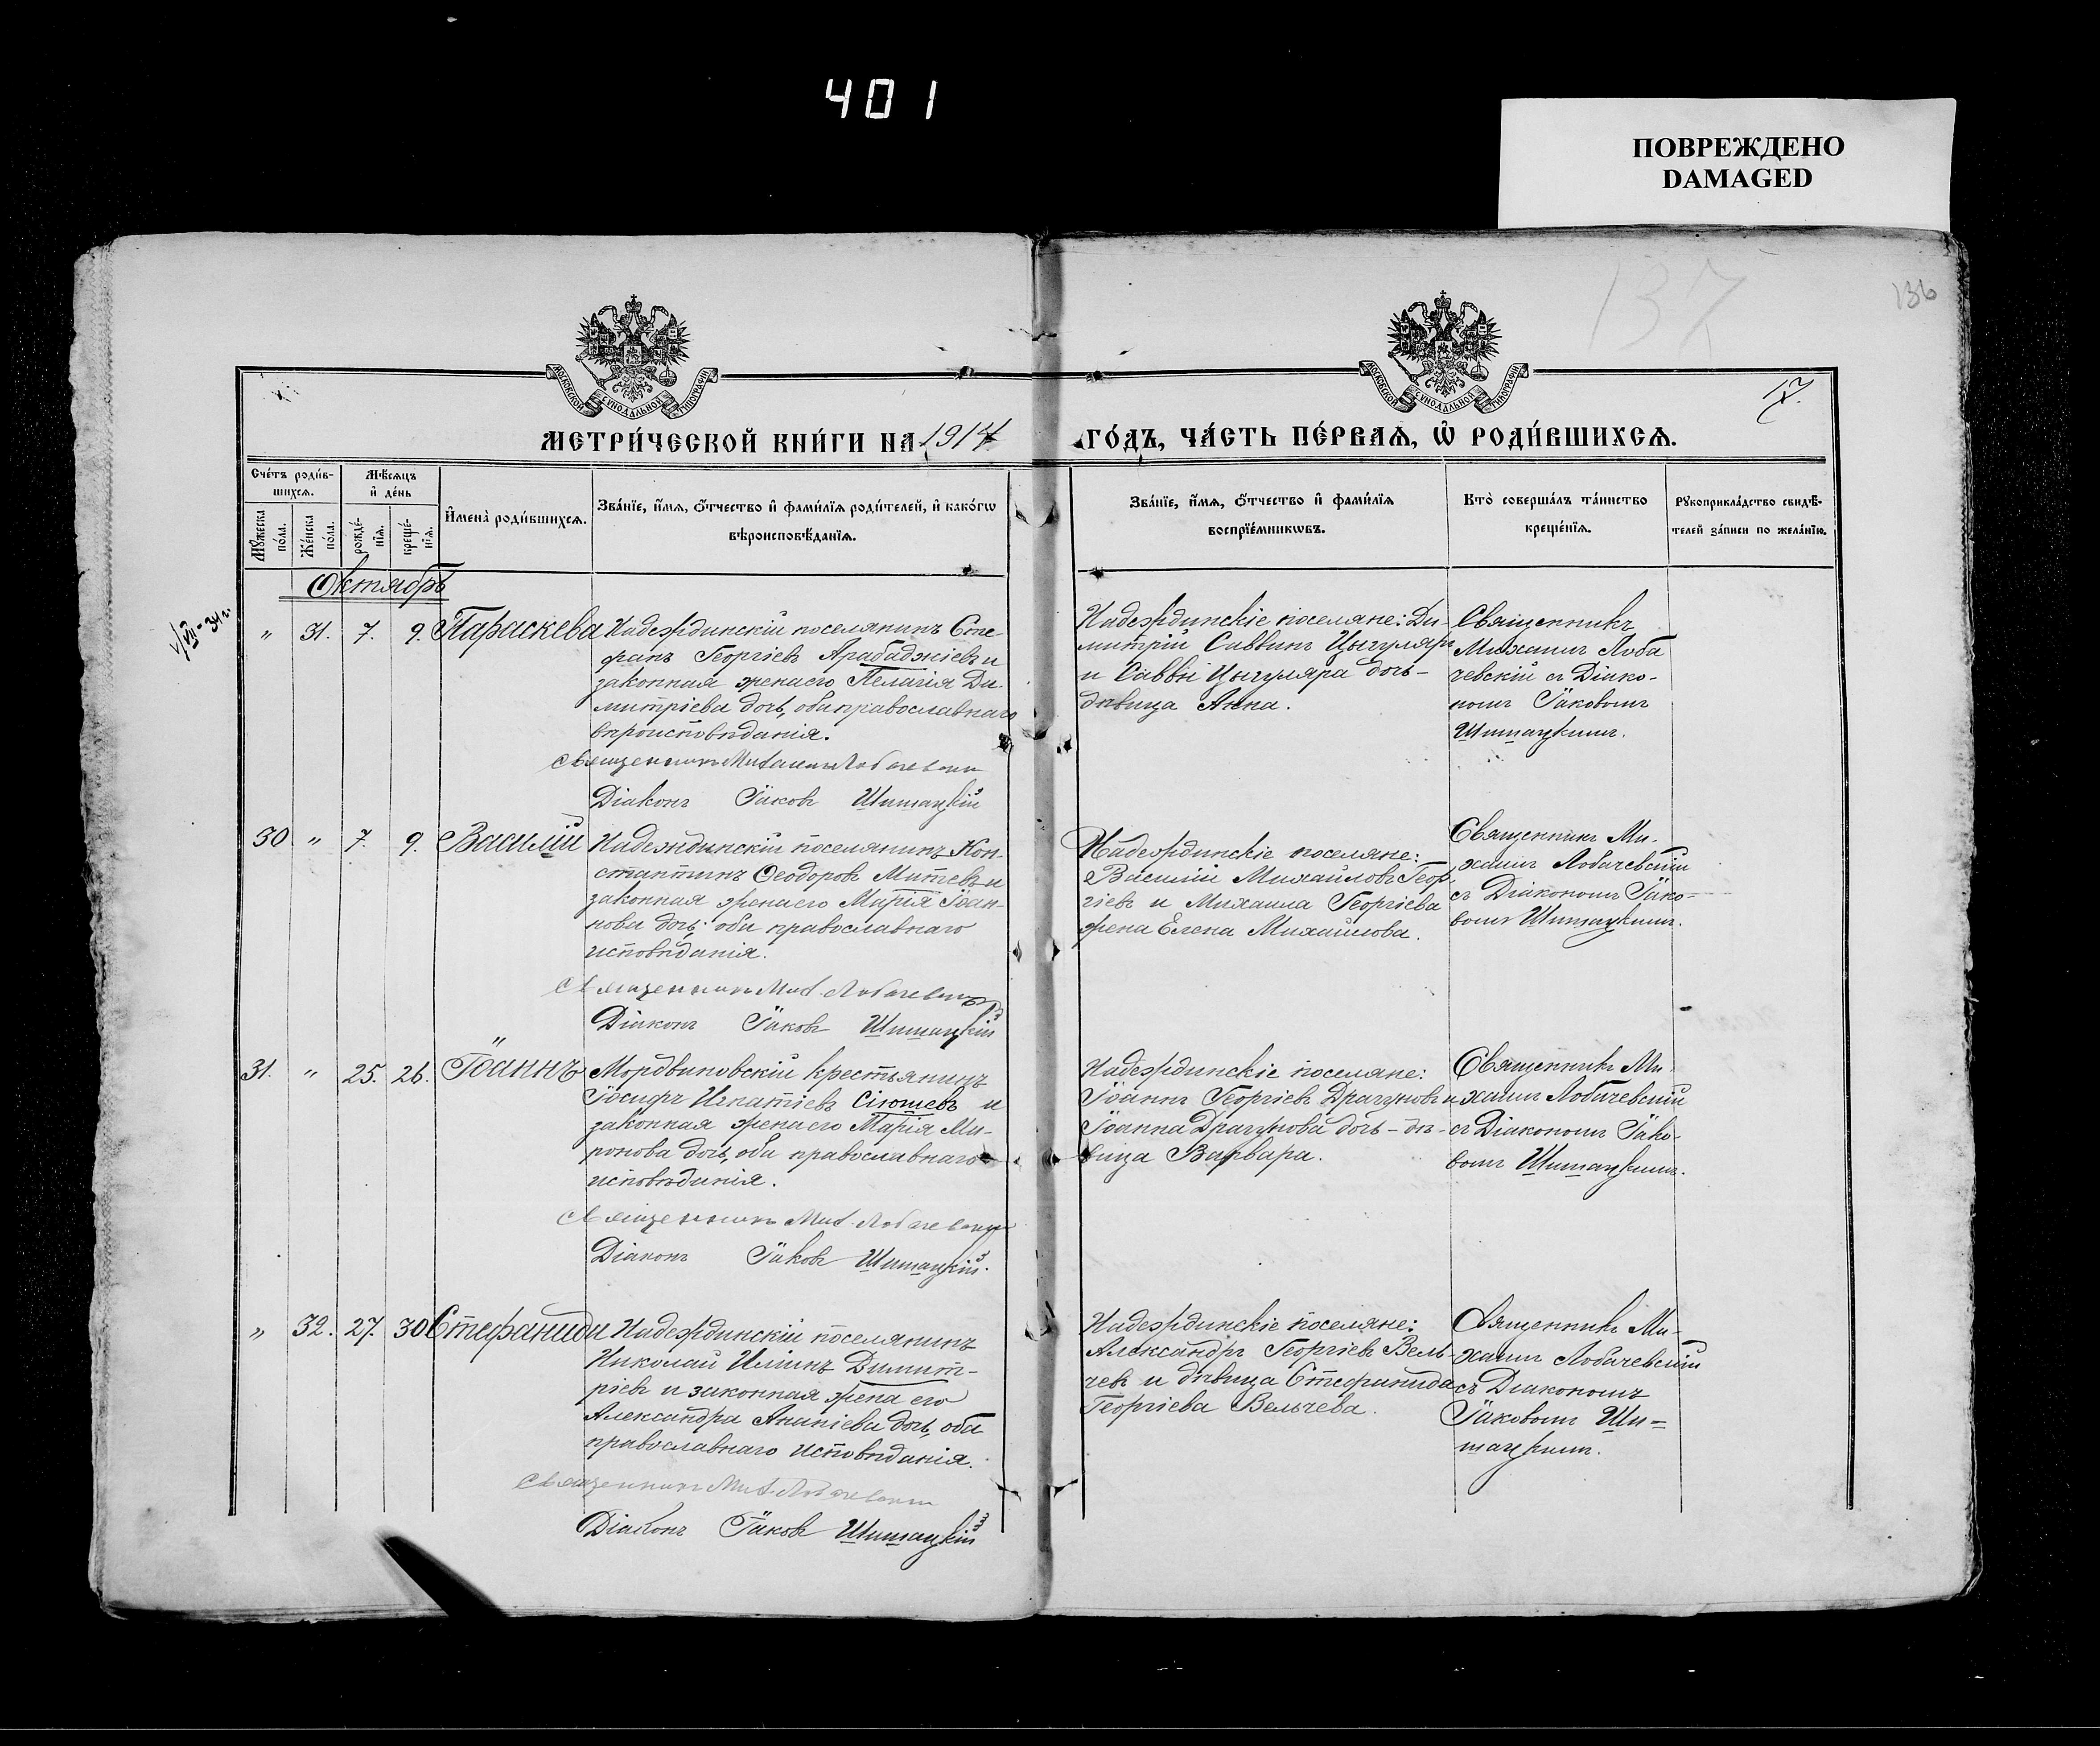 401
ПОВРЕЖДЕНО
DAMAGED
137
136
МОСКОВСКОЙ СѴНОДАЛЬНОЙ ТИПОГРАФІИ
МОСКОВСКОЙ СѴНОДАЛЬНОЙ ТИПОГРАФІИ
17.
МЕТРИ́ЧЕСКОЙ КНИ́ГИ НА 1914
ГО́ДЪ, ЧА́СТЬ ПЕ́РВАѦ, Ѽ РОДИ́ВШИХСѦ.
Сче́тъ роди́в-
шихсѧ.
Мѣ́сѧцъ
и҆ де́нь
Мꙋ́жеска
по́ла.
Же́нска
по́ла.
рожде́-
нїѧ.
креще́-
нїѧ.
И҆мена̀ роди́вшихсѧ.
Зва́нїе, и҆́мѧ, ѻ҆́тчество и҆ фами́лїѧ роди́телей, и҆ како́гѡ
вѣроисповѣ́данїѧ.
Зва́нїе, и҆́мѧ, ѻ҆́тчество и҆ фами́лїѧ
воспрїе́мникѡвъ.
Кто̀ соверша́лъ та́инство
креще́нїѧ.
Рꙋкоприкла́дство свидѣ́-
телей за́писи по жела́нїю.
Октябрь
" 31. 7. 9. Параскева
Надеждинскій поселянинъ Сте-
фанъ Георгіевъ Арабаджіевъ и
законная жена его Пелагія Ди-
митріева дочь, оба православнаго
вѣроисповѣданія.
Священникъ Михаилъ Лобачевскій
Діаконъ Іаковъ Шишацкій
Надеждинскіе поселяне: Ди-
митрій Саввинъ Цынгуляръ
и Саввы Цынгуляра дочь -
дѣвица Анна.
Священникъ
Михаилъ Лоба
чевскій съ Діако-
номъ Іаковомъ
Шишацкимъ.
30 " 7. 9. Василій
Надеждинскій поселянинъ Кон-
стантинъ Ѳеодоровъ Митевъ и
законная жена его Марія Іоан-
нова дочь, оба православнаго
исповѣданія.
Священникъ Мих. Лобачевскій
Діаконъ Іаковъ Шишацкій
Надеждинскіе поселяне:
Василій Михайловъ Геор-
гіевъ и Михаила Георгіева
жена Елена Михайлова.
Священникъ Ми-
хаилъ Лобачевскій
съ Діакономъ Іако-
вомъ Шишацкимъ.
31. " 25. 26. Іоаннъ
Мордвиновскій крестьянинъ
Іосифъ Игнатіевъ Сіғошевъ и
законная жена его Марія Ми-
ронова дочь, оба православнаго
исповѣданія.
Священникъ Мих. Лобачевскій
Діаконъ Іаковъ Шишацкій.
Надеждинскіе поселяне:
Іоаннъ Георгіевъ Драгуновъ и
Іоанна Драгунова дочь - дѣ-
вица Варвара.
Священникъ Ми-
хаилъ Лобачевскій
съ Діакономъ Іако-
вомъ Шишацкимъ.
" 32. 27. 30 Стефанида
Надеждинскій поселянинъ
Николай Илiинъ Димит-
ріевъ и законная жена его
Александра Ананіева дочь, оба
православнаго исповѣданія.
Священникъ Мих. Лобачевскій
Діаконъ Іаковъ Шишацкій
Надеждинскіе поселяне:
Александръ Георгіевъ Вель-
чевъ и дѣвица Стефанида
Георгіева Вельчева.
Священникъ Ми-
хаилъ Лобачевскій
съ Діакономъ
Іаковомъ Ши-
шацкимъ.